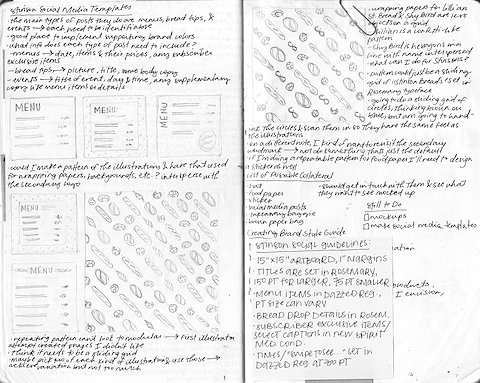 Stinson Social Media Templates
the main types of posts they do are menus, bread tips, &
events → each need to be identifiable
- good place to implement supporting brand colors
- what info does each type of post need to include?
- menus → date, items & their prices, any subscriber
exclusive items
- bread tips → picture, title, some body copy
- events → title of event, day & time, any supplementary
copy like menu items or details
MENU
MENU
MENU
could I make a pattern of the illustrations & have that used
for wrapping papers, backgrounds, etc.? intersperse with
the secondary logo
MENU
MENU
repeating pattern can't look too modular → first illustrator
attempt created grapes I didn't like
- think it needs to be a sliding grid
- maybe pick two of each kind of illustration & use those →
add variation but not too much
- wrapping paper for Lillian
St. Bread & Shy Bird are less
objects on a grid
- Lillian is a confetti-like
pattern
- Shy Bird is hexagons in a
line with name interspersed
- what can I do for Stinson?
- pattern could just be a sliding
grid of "Stinson Breads" set in
Rosemary typeface
- going to do a sliding grid of
circles, thinking brown on
blue, but am going to hand-
ink the circles & scan them in so they have the same feel as
the illustrations
- on a different note, I kind of want to revisit the secondary
wordmark → not do something that's just the default
- if I'm doing a repeatable pattern for food paper I'll need to design
stickers as well
List of Possible Collateral
food paper
sticker
social media posts
takeaway bag
brown paper bag
- should get in touch with them & see what
they want to see mocked up
Still to Do
mockups
make social media templates
Creating Brand Style Guide
Stinson Social Guidelines:
15"x15" artboard, 1" margins
- Titles are set in Rosemary,
150 pt for larger, 75 pt smaller
- Menu items in Dazzed Reg.,
pt size can vary
- Bread drop details in Rosem.
- Subscriber exclusive items/
select captions in New Spirit
Med. Cond.
- Times/"swipe to see..." set in
Dazzed Reg at 700 pt
products,
I envision,